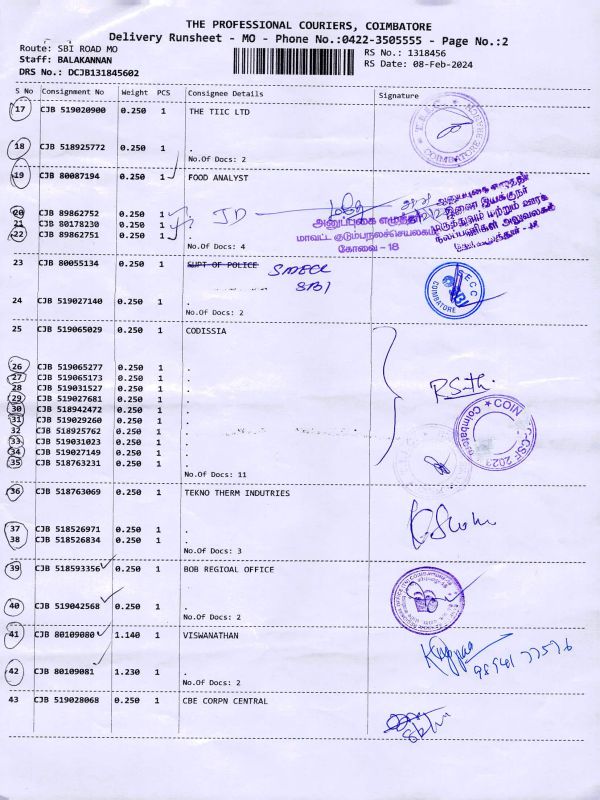 THE PROFESSIONAL COURIERS, COIMBATORE
Delivery Runsheet - MO - Phone No.:0422-3505555 - Page No.:2
Route: SBI ROAD MO
RS No.: 1318456
Staff: BALAKANNAN
RS Date: 08-Feb-2024
DRS No.: DCJB131845602
S No Consignment No Weight PCS Consignee Details Signature
17 CJB 519020900 0.250 1 THE TIIC LTD
18 CJB 518925772 0.250 1 .
No.Of Docs: 2
COIMBATORE
19 CJB 80087194 0.250 1 FOOD ANALYST
20 CJB 89862752 0.250 1 .
21 CJB 80178230 0.250 1 .
22 CJB 89862751 0.250 1 .
JD
No.Of Docs: 4
அனுப்புகை எழுத்தர்
மாவட்ட குடும்பநலச்செயலகம்
கோவை - 18
23 CJB 80055134 0.250 1 SUPT OF POLICE SMECC
SBI
24 CJB 519027140 0.250 1 .
No.Of Docs: 2
SBI
COIMBATORE
25 CJB 519065029 0.250 1 CODISSIA
26 CJB 519065277 0.250 1 .
27 CJB 519065173 0.250 1 .
28 CJB 519031527 0.250 1 .
29 CJB 519027681 0.250 1 .
30 CJB 518942472 0.250 1 .
31 CJB 519029260 0.250 1 .
32 CJB 518925762 0.250 1 .
33 CJB 519031023 0.250 1 .
34 CJB 519027149 0.250 1 .
35 CJB 518763231 0.250 1 .
No.Of Docs: 11
36 CJB 518763069 0.250 1 TEKNO THERM INDUTRIES
37 CJB 518526971 0.250 1 .
38 CJB 518526834 0.250 1 .
No.Of Docs: 3
39 CJB 518593356 0.250 1 BOB REGIOAL OFFICE
40 CJB 519042568 0.250 1 .
No.Of Docs: 2
41 CJB 80109080 1.140 1 VISWANATHAN
42 CJB 80109081 1.230 1 .
No.Of Docs: 2
43 CJB 519028068 0.250 1 CBE CORPN CENTRAL